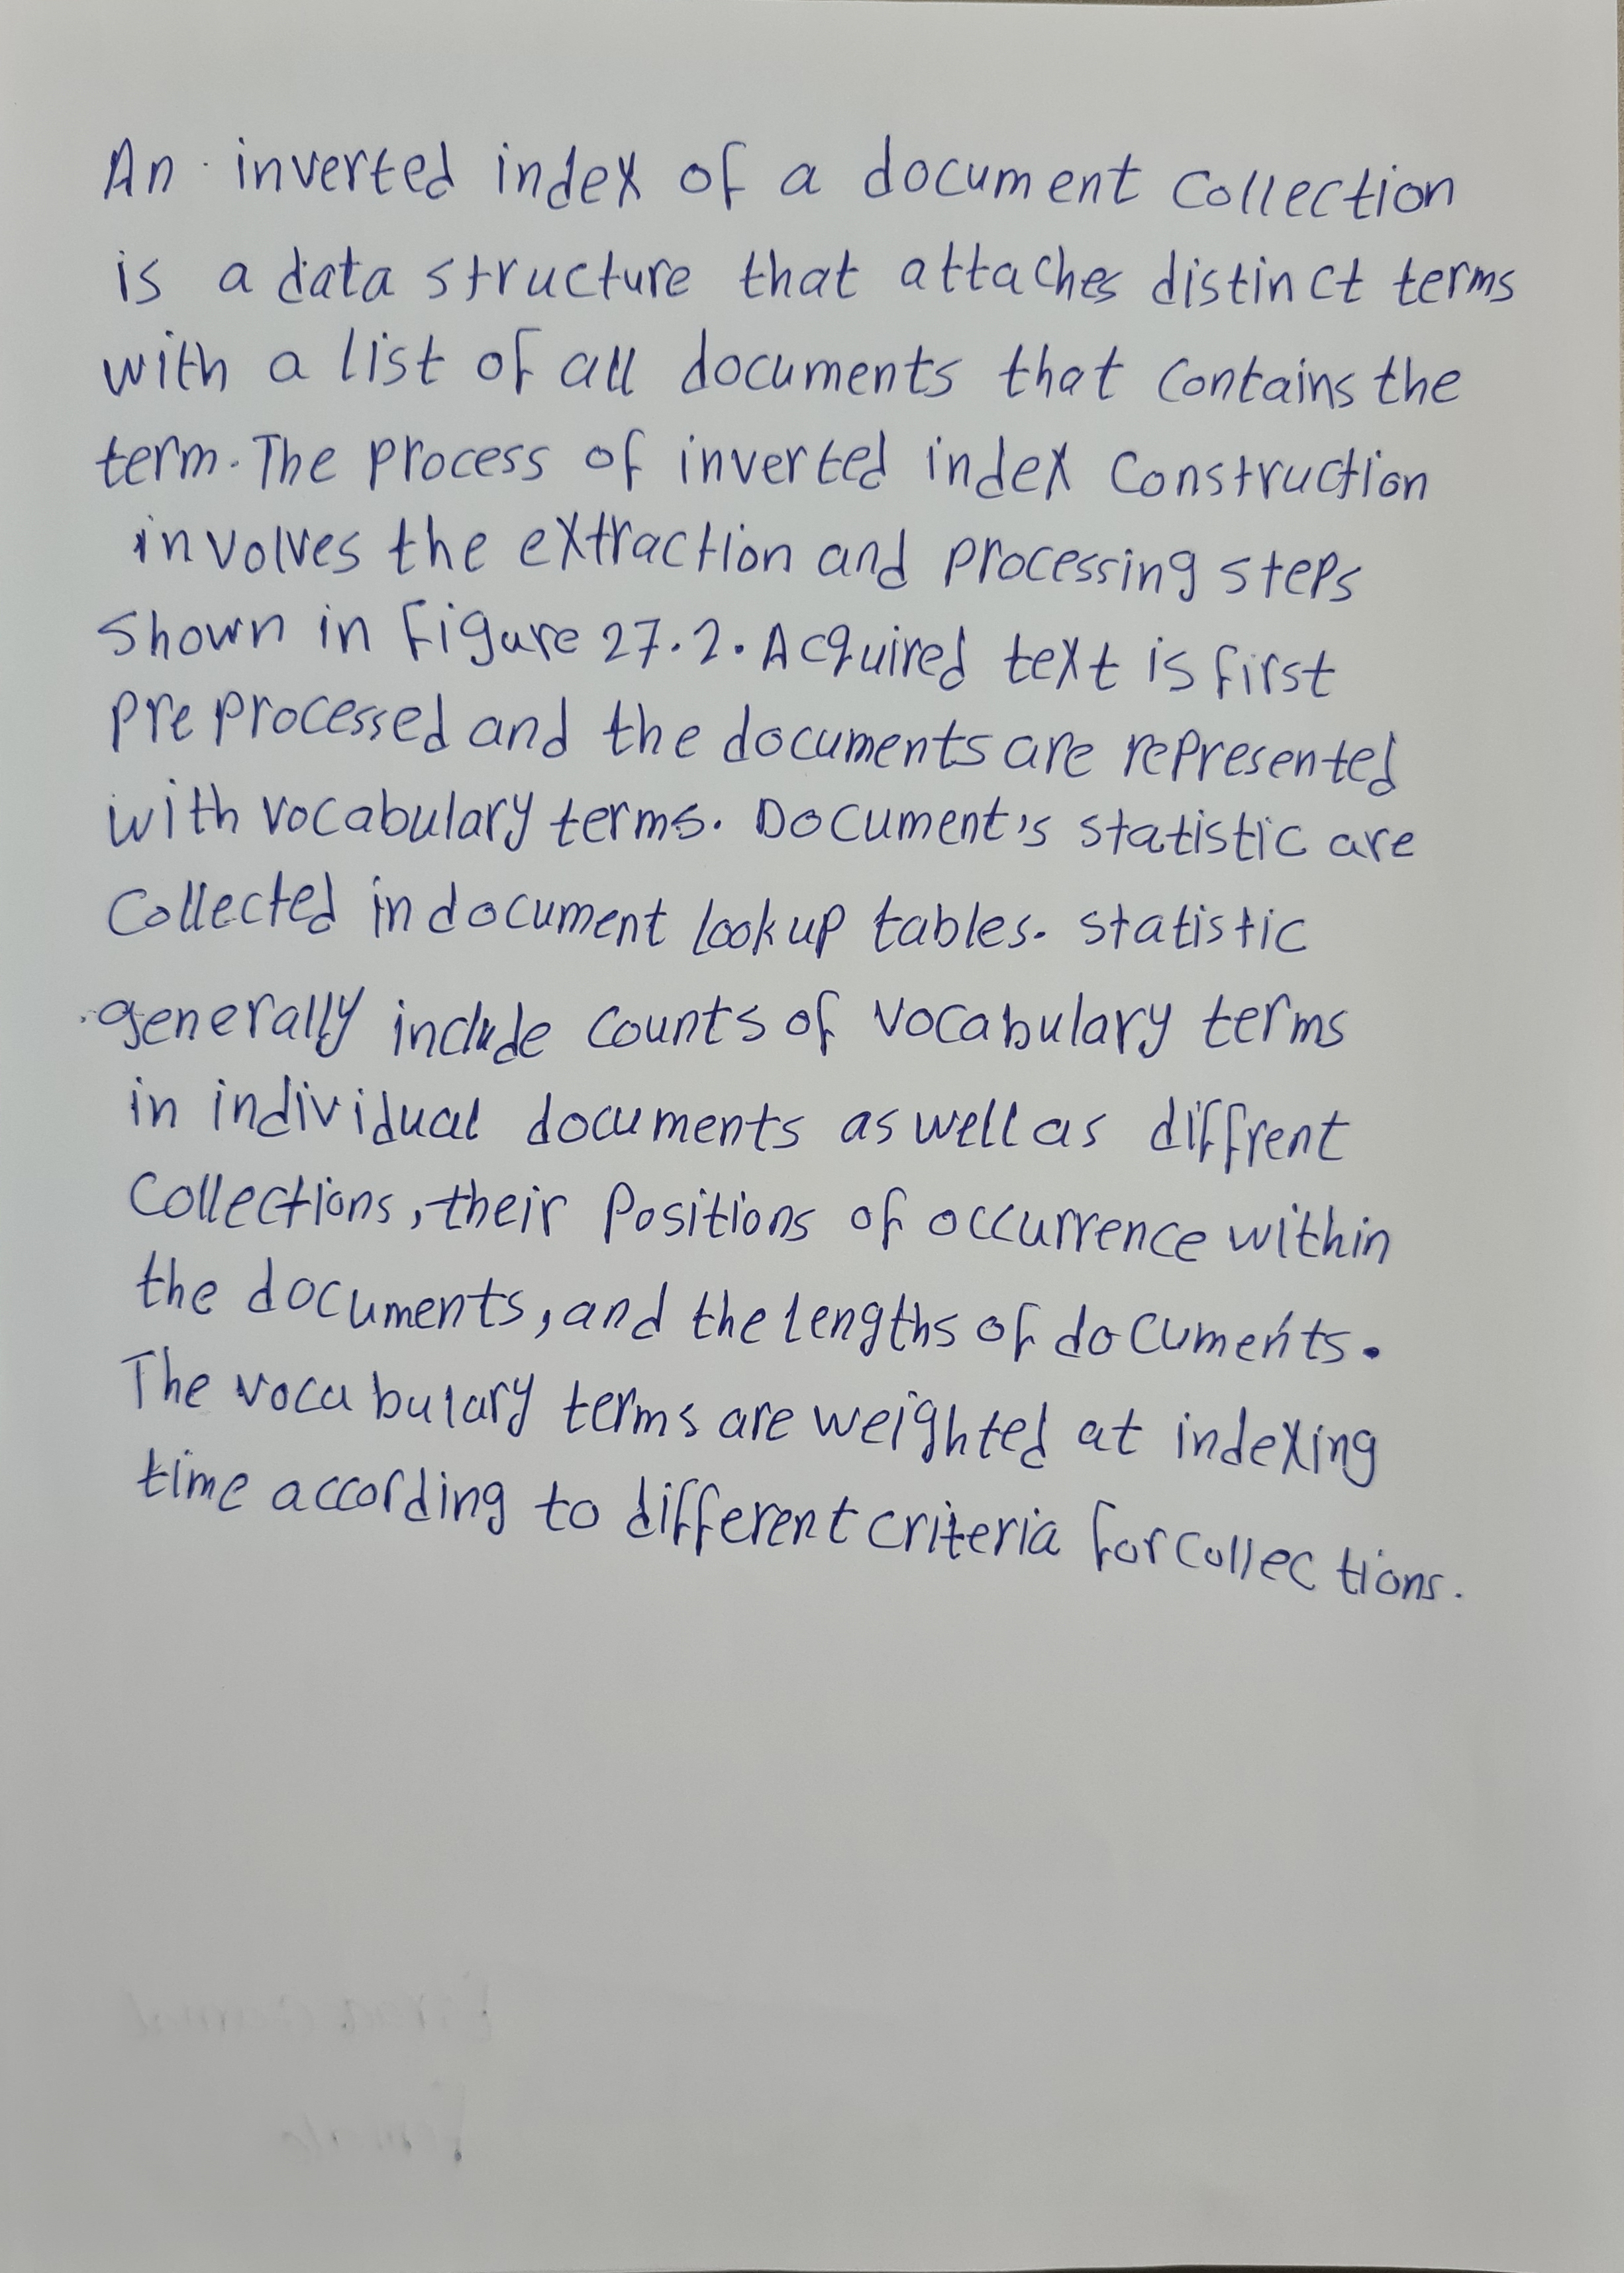 An inverted index of a document collection
is a data structure that attaches distinct terms
with a list of all documents that contains the
term. The process of inverted index construction
involves the extraction and processing steps
shown in Figure 27.2. Acquired text is first
preprocessed and the documents are represented
with vocabulary terms. Document's statistic are
collected in document lookup tables. statistic
generally include counts of vocabulary terms
in individual documents as well as diffrent
collections, their positions of occurrence within
the documents, and the lengths of documents.
The vocabulary terms are weighted at indexing
time according to different criteria for collections.